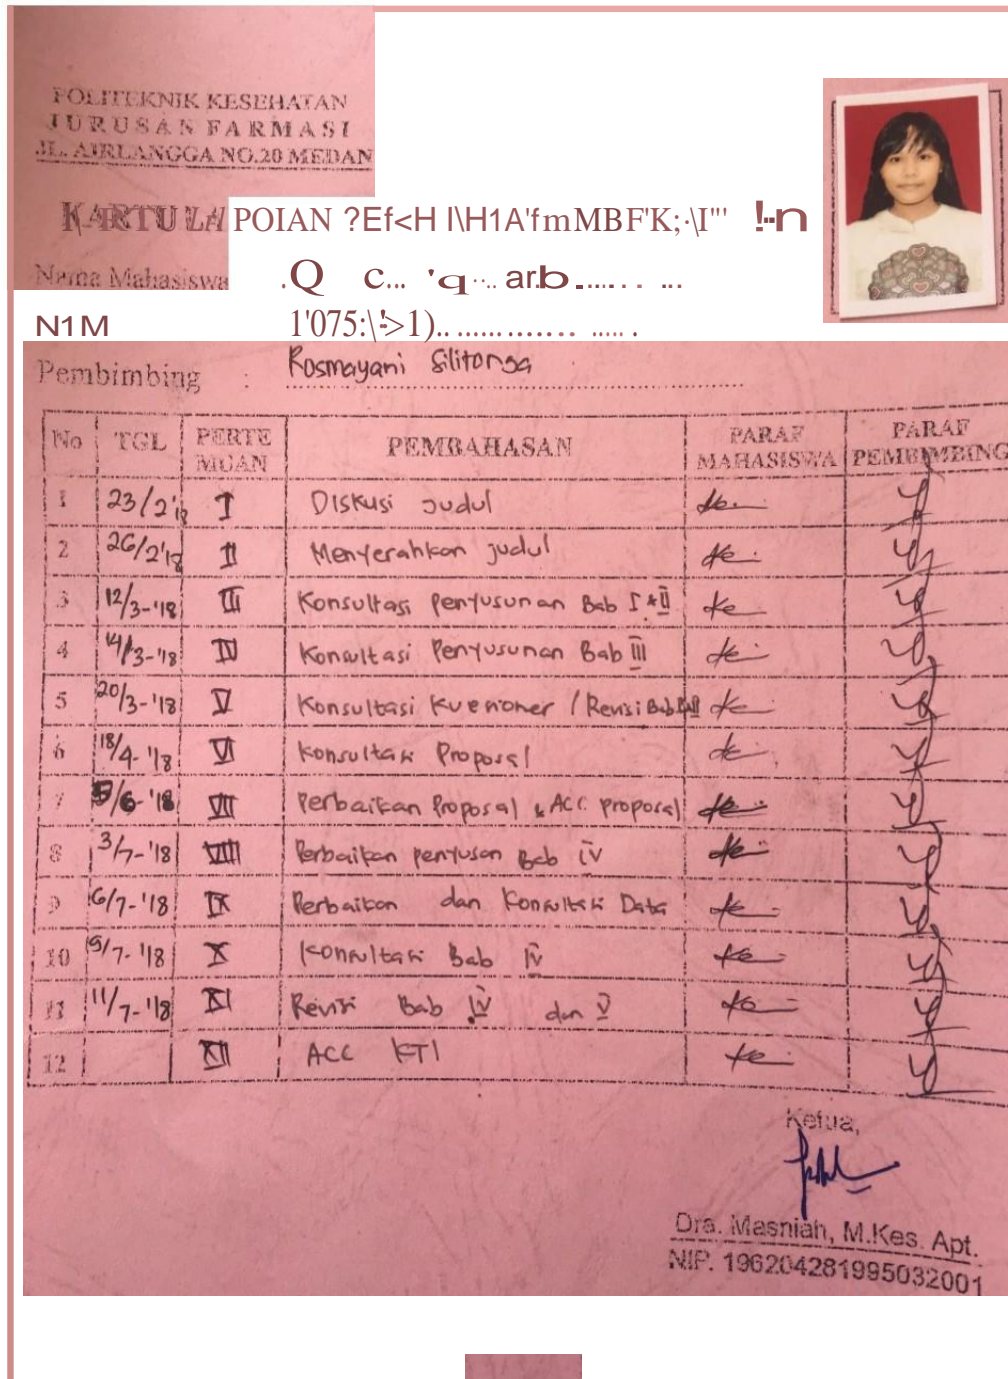 POLITEKNIK KESEHATAN
JURUSAN FARMASI
JL. AIRLANGGA NO.20 MEDAN
KARTU LA POIAN ?Ef<H I\H1A'fmMBF'K;·\I"' !-n
Nama Mahasiswa .Q c... 'q ... ar.b ....... ...
N1M 1'075:\'>1).. .............. ..... .
Pembimbing : Rosmayani Silitonga
No TGL PERTE MUAN PEMBAHASAN PARAF MAHASISWA PARAF PEMBIMBING
1 23/2'18 I Diskusi Judul
2 26/2'18 II Menyerahkan judul
3 12/3-'18 III Konsultasi Penyusunan Bab I & II
4 14/3-'18 IV Konsultasi Penyusunan Bab III
5 20/3-'18 V Konsultasi Kuesioner / Revisi Bab
6 18/4-'18 VI Konsultasi Proposal
7 5/6-'18 VII Perbaikan Proposal & ACC proposal
8 3/7-'18 VIII Perbaikan penyusun Bab IV
9 6/7-'18 IX Perbaikan dan Konsultasi Data
10 9/7-'18 X Konsultasi Bab IV
11 11/7-'18 XI Revisi Bab IV dan V
12 XII ACC KTI
Ketua,
Dra. Masniah, M.Kes. Apt.
NIP. 196204281995032001